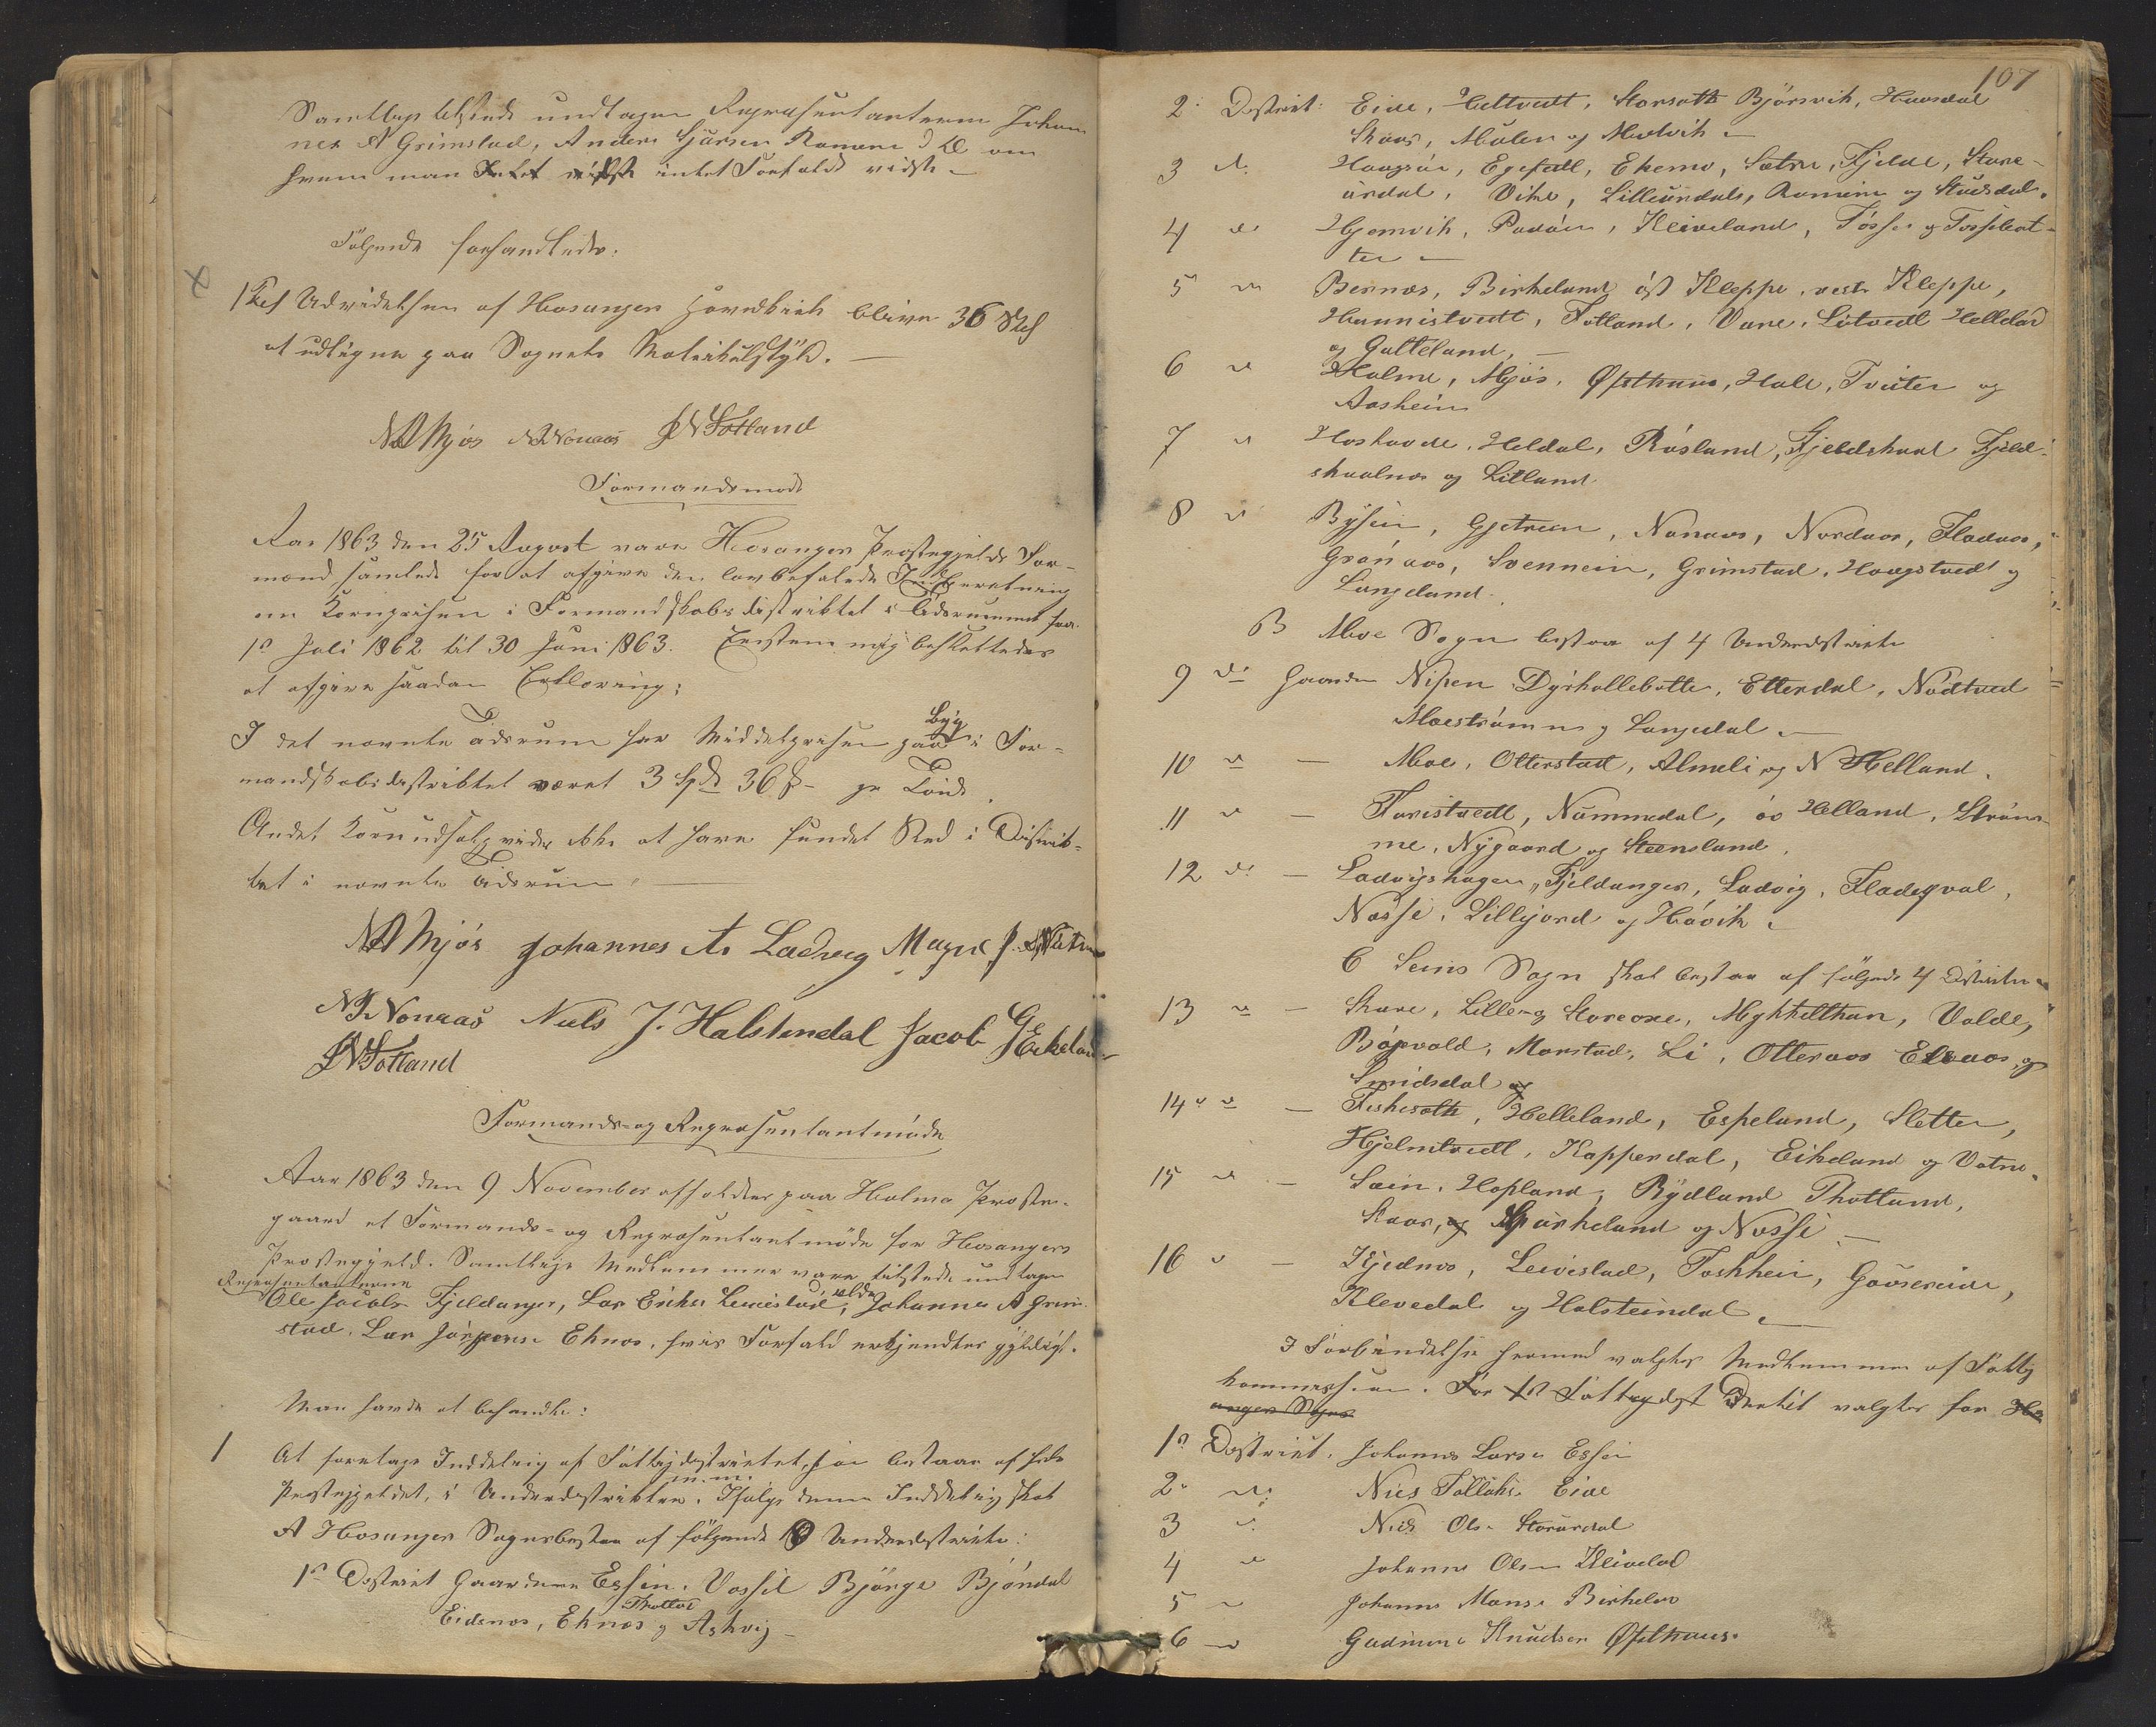 Samtlige tilstede undtagen Repræsentanterne Johan
nes A Grimstad, Anders Romme
hvem man intet Forfald vidste
Følgende forhandledes:
Udvidelsen af Hosanger Hovedkirke blive 36
at udligne paa Sognets Matrikulskyld. —
NA Mjøs NJNonaas JNTotland
Formandsmøde
Aar 1863 den 25 August vare Hosanger Præstegjelds For-
mænd samlede for at afgive den lovbefalede Indberetning
om Kornprisen i Formandskabsdistriktet i Tidsrummet fra
1ste Juli 1862 til 30 Juni 1863. Eenstemmig besluttedes
at afgive saadan Erklæring:
I det nævnte Tidsrum har Middelprisen paa Byg i For-
mandskabsdistriktet været 3 Spd 36 ß pr Tønde.
Andet Kornudsalg vides ikke at have fundet Sted i Distrik-
tet i nævnte Tidsrum. —
NA Mjøs Johannes A. Ladvig Magne
NJNonaas Niels J. Halstendal Jacob G Eikeland
JNTotland
Formands- og Repræsentantmøde
Aar 1863 den 9 November afholdtes paa Holme Præste-
gaard et Formands- og Repræsentantmøde for Hosangers
Præstegjeld. Samtlige Medlemmer vare tilstede undtagen
Repræsentanterne
Ole Jacobs. Fjeldanger, Lars Eriks. Leivestad, Johannes A Grim-
stad, Lars Eknæs, hvis Forfald erkjendtes gyldigt.
Man havde at behandle:
1 At foretage Inddeling af Fattigdistriktet, som bestaar af hele
Præstegjeldet, i Underdistrikter m.m. Ifølge denne Inddeling skal
A Hosanger Sogn bestaa af følgende 8 Underdistrikter:
1ste Distrikt Gaardene Essen, Vassel Bjørge Bjøndal
Eidsnæs, Eknæs, Askvig —
107
2. Distrikt: Eide, Heltvedt, Storsæth Bjørsvik, Husdal
Skaar, Molen og Mælvik —
3 d. Haugsøen, Egeland, Ekemo, Sætre, Fjelde, Store-
urdal, Vike, Lilleurdal, Romeim og Studsdal.
4 d. Hjemvik, Padøen, Kleiveland, Tøsse og Tosseslet-
ten —
5 d. Bernæs, Birkeland, øst Kleppe, vest Kleppe,
Hannistvedt, Totland, Vare, Litvedt Helldal
og Galteland, —
6 d Holme, Mjøs, Øpsthuus, Hole, Tveiten og
Aasheim
7 d Hoshovde, Heldal, Røsland, Fjeldskaal Fjeld-
skaalnæs og Litland
8 d Bysein, Gjetreim, Nonaas, Nordaas, Fladaas,
Grønaas, Svenheim, Grimstad, Haugstvedt og
Langeland.
B Moe Sogn bestaar af 4 Underdistrikter
9 d. Gaarden Nipen Dyrhollebotten, Etterdal, Nødtved
Moestrømme og Langedal —
10 d — Moe, Otterstad, Almeli og N Helland.
11 d — Toristvedt, Nømmedal, øv Helland, Strøm-
me, Nygaard og Steensland.
12 d. — Ladvigshagen, Fjeldanger, Ladvig, Fladeqval,
Næsse, Lillejord og Høvik.
C Seims Sogn skal bestaa af følgende 4 Distrikter
13 d — Skare, Lille og Storeoxe, Mykkelthun, Valde,
Bøgvald, Monstad, Li, Otteraas Elvaas og
Smidsdal
14 d — Fiskesæth, Helleland, Espeland, Sletten,
Hjelmtvedt, Kopperdal, Eikeland og Vatne.
15 d — Seim, Hopland, Rydland Thotland,
Skaar, og Spurkeland og Næsse —
16 d — Kjednæs, Leivestad, Toskhein, Gaasereide,
Klevedal og Halsteindal —
I Forbindelse hermed valgtes Medlemmer af Fattig
kommissionen. Dertil valgtes for
1ste Distrikt. Johannes Larsen Essen
2. d. Nils Eide
3 d. Nils Ols. Storurdal
4 d Johannes Olsen Kleiveland
5 d Johannes Monsen Birkeland
6 d Gudmund Knudsen Øpsthuus.